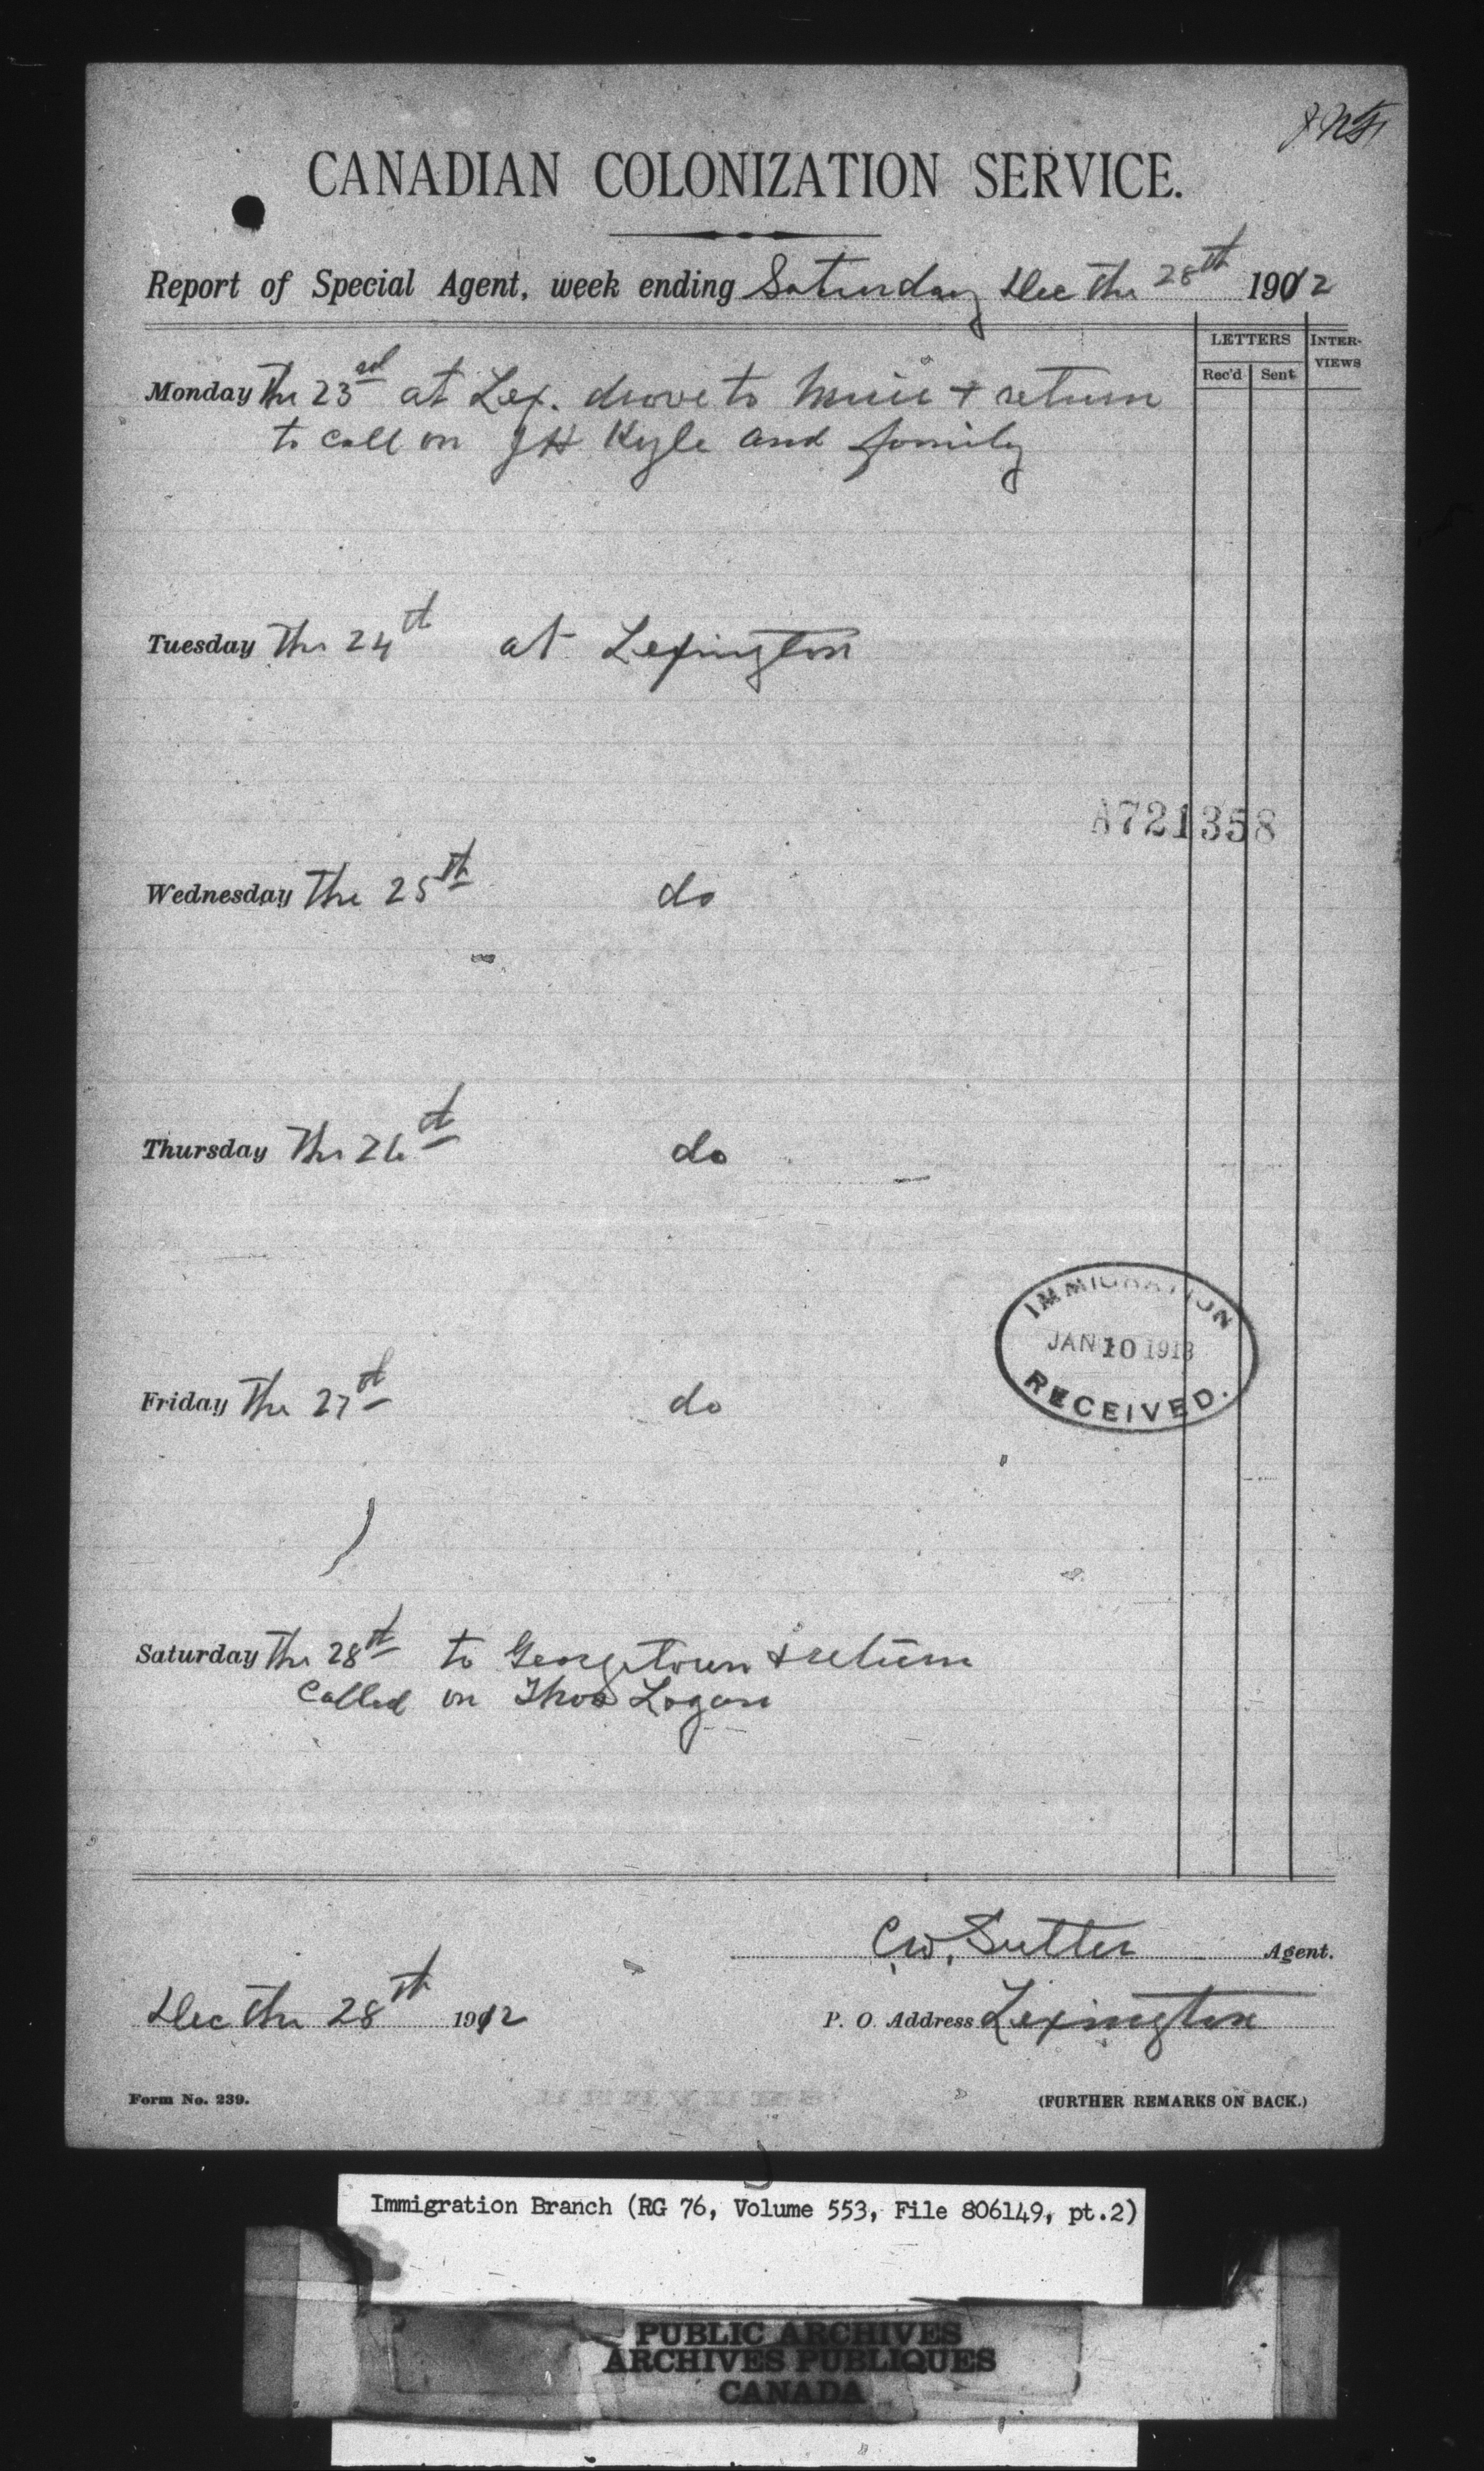 CANADIAN COLONIZATION SERVICE.
Report of Special Agent, week ending Saturday Dec the 28th 1912
LETTERS INTER-VIEWS
Rec'd Sent
Monday the 23rd at Lex. drove to Muir + return
to call on J H Kyle and family
Tuesday the 24th at Lexington
A721358
Wednesday the 25th do
Thursday the 26th do
IMMIGRATION
JAN 10 1913
RECEIVED.
Friday the 27th do
Saturday the 28th to Georgetown & return
called on Thos Logan
C.W. Sutter Agent.
Dec the 28th 1912 P. O. Address Lexington
Form No. 239. (FURTHER REMARKS ON BACK.)
Immigration Branch (RG 76, Volume 553, File 806149, pt.2)
PUBLIC ARCHIVES
ARCHIVES PUBLIQUES
CANADA